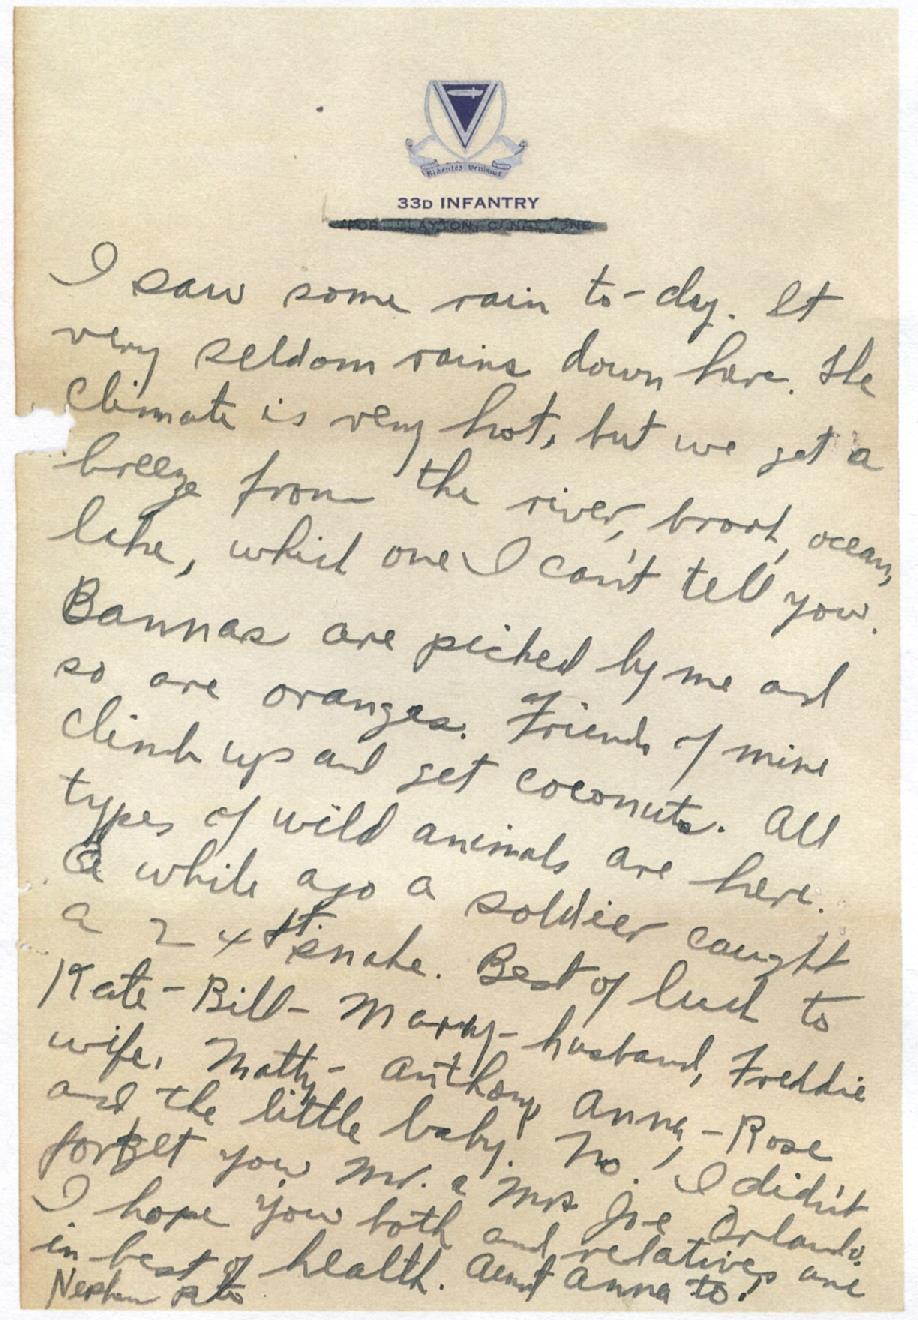 33D INFANTRY
I saw some rain to-day. It
very seldom rains down here. The
climate is very hot, but we get a
breeze from the river, brook, ocean,
lake, which one I can't tell you.
Bannas are picked by me and
so are oranges. Friends of mine
climb up and get coconuts. All
types of wild animals are here.
A while ago a soldier caught
a 24 ft snake. Best of luck to
Kate - Bill - Marry - husband, Freddie
wife, Matty - Anthony Anna, - Rose
and the little baby. No! I didn't
forget you Mr. & Mrs Joe Orlando.
I hope you both and relatives are
in best of health. Aunt Anna to!
Nephew